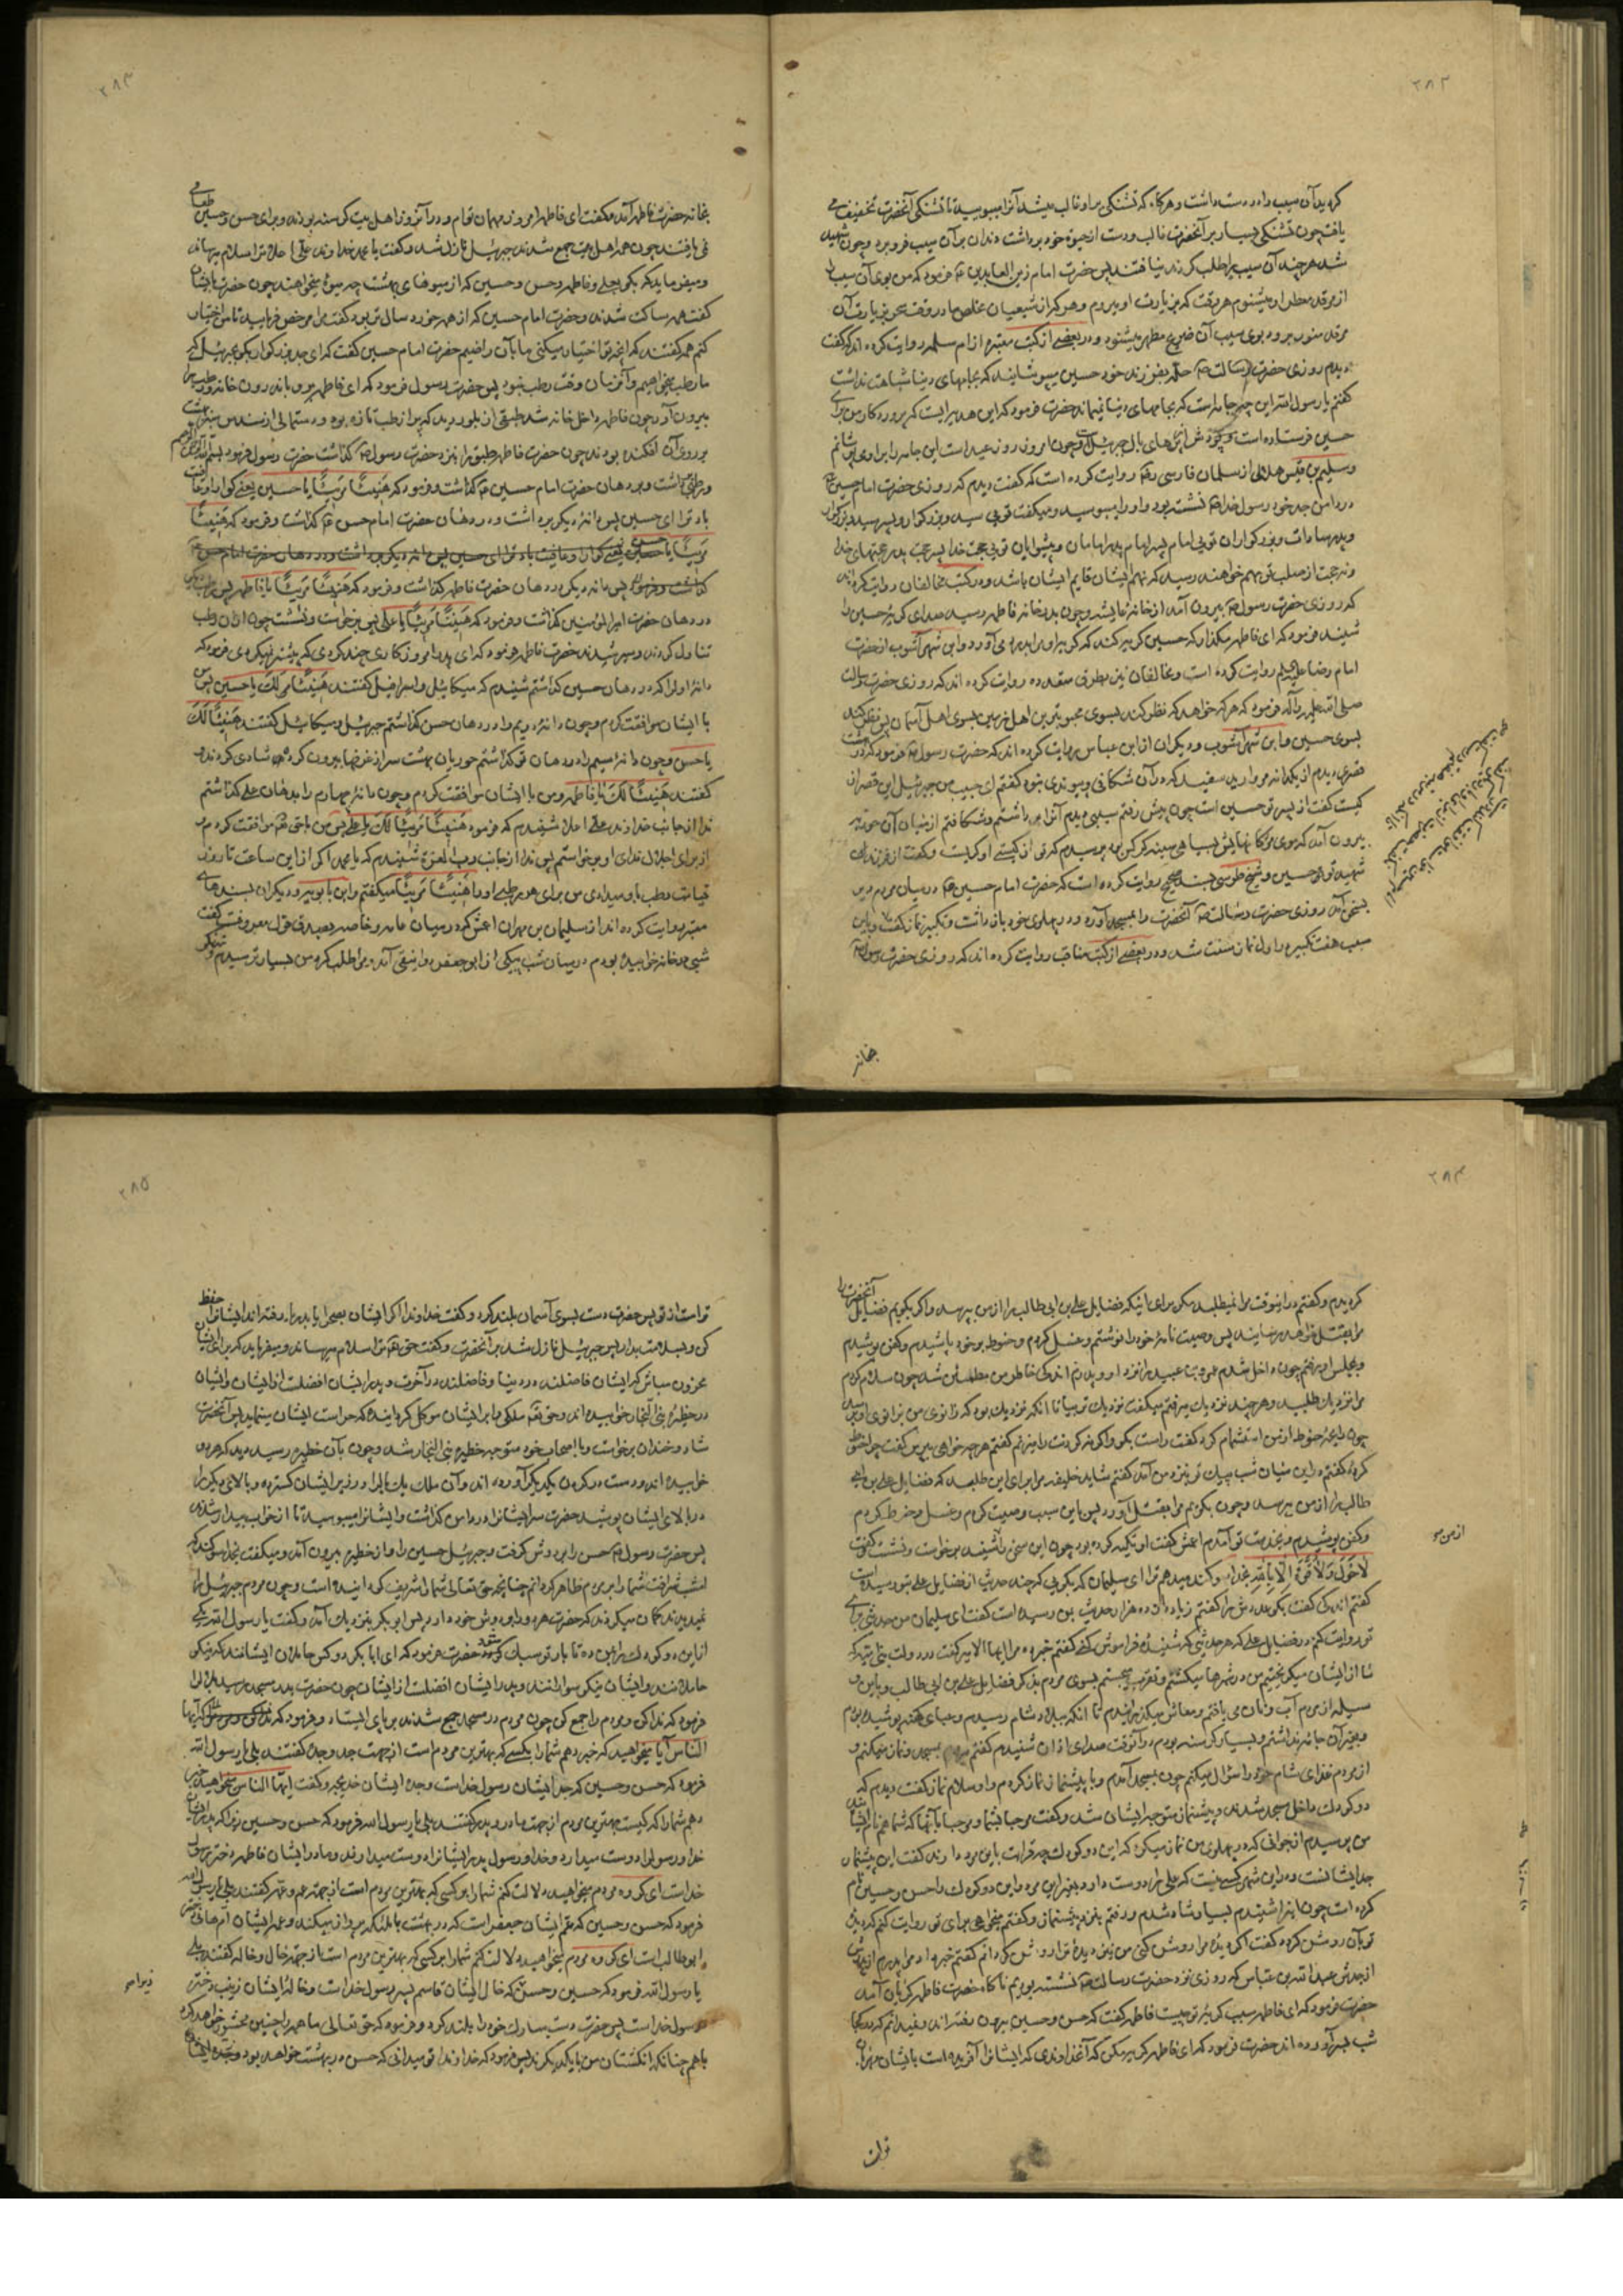 ۲۸۲
کردید آن سیب را در دست داشت و هرگاه که تشنگی بر او غالب میشد آنرا میبوسید تا تشنگی آنحضرت تخفیف می
یافت چون تشنگی بسیار بر آنحضرت غالب و دست از حیوة خود برداشت دندان بر آن سیب فرو برد و چون شهید
شد هر چند آن سیب را طلب کردند نیافتند پس حضرت امام زین العابدین ع فرمود که من بوی آن سیب را
از مرقد مطهر او میشنوم هر وقت که بزیارت او میروم و هر که از شیعیان مخلص ما در وقت سحر بزیارت آن
مرقد منور برود بوی سیب از آن ضریح مطهر میشنود و در بعضی از کتب معتبره از ام سلمه روایت کرده اند که گفت
دیدم روزی حضرت رسالت ص حله بفرزند خود حسین میپوشانید که بجامهای دنیا شباهت نداشت
گفتم یا رسول الله این چه جامه است که بجامهای دنیا نمیماند حضرت فرمود که این هدیه ایست که پروردگار من برای
حسین فرستاده است و پودش از پرهای بال جبرئیل است و چون امروز روز عید است این جامه را بر او می پوشانم
و سلیم بن قیس هلالی از سلمان فارسی رض روایت کرده است که گفت دیدم که روزی حضرت امام حسین ع
در دامن جد خود رسول خدا ص نشسته بود و او را میبوسید و میگفت تویی سید و بزرگوار و پسر سید و بزرگوار
و پدر سادات و بزرگواران تویی امام پسر امام پدر امامان و پیشوایان تویی حجت خدا پسر حجت پدر حجتهای خدا
و نه حجت از صلب تو بهم خواهند رسید که نهم ایشان قایم ایشان باشد و در کتب مخالفان روایت کرده اند
که روزی حضرت رسول ص بیرون آمد از خانه عایشه و چون بدر خانه فاطمه رسید صدای گریه حسین را
شنید فرمود که ای فاطمه مگذار که حسین گریه کند که گریه او مرا بدرد می آورد و ابن شهرآشوب از حضرت
امام رضا علیه السلام روایت کرده است و مخالفان نیز بطرق متعدده روایت کرده اند که روزی حضرت رسالت
صلی الله علیه و آله فرمود که هر که خواهد که نظر کند بسوی محبوبترین اهل زمین بسوی اهل آسمان پس نظر کند
بسوی حسین و ابن شهرآشوب و دیگران از ابن عباس روایت کرده اند که حضرت رسول ص فرمود که در بهشت
قصری دیدم از یکدانه مروارید سفید که در آن شکافی و پیوندی نبود گفتم ای حبیب من جبرئیل این قصر از
کیست گفت از پسر تو حسین است چون پیش رفتم سیبی دیدم آنرا برداشتم و شکافتم از میان آن حوریه
بیرون آمد که موی مژگانهایش بسیاهی سینه کرکس بود پرسیدم که تو از کیستی او گریست و گفت از فرزند
شهید تو حسین و شیخ طوسی بسند صحیح روایت کرده است که حضرت امام حسین ع در میان مردم دیر
بسخن آمد روزی حضرت رسالت ص آنحضرت را بمسجد آورد و در پهلوی خود بازداشت و تکبیر نماز گفت و باین
سبب هفت تکبیر در اول نماز سنت شد و در بعضی از کتب مناقب روایت کرده اند که روزی حضرت رسول ص
بخانه
۲۸۳
بخانه حضرت فاطمه آمد و گفت ای فاطمه امروز مهمان توام و در آنروز اهل بیت گرسنه بودند و برای حسن و حسین طعامی
نمی یافتند چون همه اهل بیت جمع شدند جبرئیل نازل شد و گفت یا محمد خداوند علی اعلا ترا سلام میرساند
و میفرماید که بگو بعلی و فاطمه و حسن و حسین که از میوه های بهشت چه میوه میخواهند چون حضرت بایشان
گفت همه ساکت شدند و حضرت امام حسین که از همه خورد سال تر بود گفت مرا مرخص فرمایید تا من اختیار
کنم همه گفتند که آنچه تو اختیار میکنی ما بآن راضییم حضرت امام حسین گفت که ای جد بزرگوار بگو بجبرئیل که
ما رطب میخواهیم و آن زمان وقت رطب نبود پس حضرت رسول فرمود که ای فاطمه برو باندرون خانه و رطب را
بیرون آور چون فاطمه داخل خانه شد طبقی از بلور دید که پر از رطب تازه بود و دستمالی از سندس سبز بهشت
بر روی آن افکنده بودند چون حضرت فاطمه طبق را بنزد حضرت رسول ص گذاشت حضرت رسول فرمود بسم الله الرحمن الرحیم
و رطبی برداشت و در دهان حضرت امام حسین ع گذاشت و فرمود که هَنِیئًا مَرِیئًا یا حسین یعنی گوارا و با عافیت
باد ترا ای حسین پس دانه دیگر برداشت و در دهان حضرت امام حسن ع گذاشت و فرمود که هَنِیئًا
مَرِیئًا یا حسن یعنی گوارا و عافیت باد ترا ای حسین پس دانه دیگر برداشت و در دهان حضرت امام حسن ع
گذاشت و فرمود پس دانه دیگر در دهان حضرت فاطمه گذاشت و فرمود که هَنِیئًا مَرِیئًا یا فاطمه پس
در دهان حضرت امیرالمؤمنین گذاشت و فرمود که هَنِیئًا مَرِیئًا یا علی پس برخاست و نشست چون از آن رطب
تناول کردند و سیر شدند حضرت فاطمه فرمود که ای پدر امروز کاری چند کردی که پیشتر نمیکردی فرمود که
دانه اول را که در دهان حسین گذاشتم شنیدم که میکائیل و اسرافیل گفتند هَنِیئًا لَکَ یا حسین پس
با ایشان موافقت کردم و چون دانه دویم را در دهان حسن گذاشتم جبرئیل و میکائیل گفتند هَنِیئًا لَکَ
یا حسن و چون دانه سیم را در دهان تو گذاشتم حوریان بهشت سر از غرفها بیرون کردند شادی کردند و
گفتند هَنِیئًا لَکَ یا فاطمه و من با ایشان موافقت کردم و چون دانه چهارم را بدهان علی گذاشتم
ندا از جانب خداوند علی اعلا شنیدم که فرمود هَنِیئًا مَرِیئًا لَکَ یا علی پس من با حق تعالی موافقت کردم و
از برای اجلال ندای او برخواستم پس ندا از جانب رب العزة شنیدم که یا محمد اگر از این ساعت تا روز
قیامت رطب باو میدادی من برای هر رطبی او را هَنِیئًا مَرِیئًا میگفتم و ابن بابویه و دیگران بسندهای
معتبر روایت کرده اند از سلیمان بن مهران اعمش که در میان عامه و خاصه بصدق قول معروفست گفت
شبی در خانه خوابیده بودم در میان شب پیکی از ابو جعفر دوانیقی آمد و مرا طلب کرد من بسیار ترسیدم و
۲۸۴
کردیدم و گفتم در اینوقت مرا نمیطلبد مگر برای اینکه فضایل علی بن ابی طالب را از من بپرسد و اگر بگویم فضایل آنحضرت را
مرا بقتل خواهد رسانید پس وصیت نامه خود را نوشتم و غسل کردم و حنوط بر خود پاشیدم و کفن پوشیدم
و بمجلس او رفتم چون داخل شدم عمرو بن عبید را نزد او دیدم اندکی خاطر من مطمئن شد چون سلام کردم
مرا نزدیک طلبید و هر چند نزدیک میرفتم میگفت نزدیک تر بیا تا آنکه نزدیک بود که زانوی من بزانوی او برسد
چون رایحه حنوط از من استشمام کرد گفت راست بگو و اگر نه گردنت را میزنم گفتم هر چه خواهی بپرس گفت چرا حنوط
کرده گفتم در این میان شب پیک تو بنزد من آمد گفتم شاید خلیفه مرا برای این طلبیده که فضایل علی بن ابی
طالب را از من بپرسد و چون بگویم مرا بقتل آورد پس باین سبب وصیت کردم و غسل و حنوط کردم
و کفن پوشیدم و بخدمت تو آمدم اعمش گفت او تکیه کرده بود چون این سخن را شنید برخواست و نشست و گفت
لَا حَوْلَ وَلَا قُوَّةَ اِلَّا بِاللّٰهِ بخدا سوگند میدهم ترا ای سلیمان که بگویی که چند حدیث از فضایل علی بتو رسیده است
گفتم اندکی گفت بگو عددش را گفتم زیاده از ده هزار حدیث بمن رسیده است گفت ای سلیمان من حدیثی برای
تو روایت کنم در فضایل علی که هر حدیثی که شنیده فراموش کنی گفتم خبر ده مرا ایها الامیر گفت در دولت بنی امیه که
ما از ایشان میگریختیم من در شهرها میگشتم و تقرب میجستم بسوی مردم بذکر فضایل علی بن ابی طالب و باین و
سیله از مردم آب و نان می یافتم و معاش میگذرانیدم تا آنکه ببلاد شام رسیدم و عبای کهنه پوشیده بودم
و بغیر آن جامه نداشتم و بسیار گرسنه بودم در آنوقت صدای اذان شنیدم گفتم میروم بمسجد و نماز میکنم و
از مردم غذای شام خود را سؤال میکنم چون بمسجد آمدم و با پیشنماز نماز کردم و او سلام نماز گفت دیدم که
دو کودک داخل مسجد شدند و پیشنماز متوجه ایشان شد و گفت مرحبا بشما و مرحبا بآنها که شما همنام ایشانید
من پرسیدم از جوانی که در پهلوی من نماز میکرد که این دو کودک چه قرابت باین مرد دارند گفت این پیشنماز
جد ایشانست و در این شهر کسی نیست که علی را دوست دارد بغیر این مرد و این دو کودک را حسن و حسین نام
کرده است چون اینرا شنیدم بسیار شاد شدم و رفتم بنزد پیشنماز و گفتم میخواهی برای تو روایت کنم که دیده
تو بآن روشن گردد گفت اگر دیده مرا روشن کنی من نیز دیده ترا روشن گردانم گفتم خبر داد مرا پدرم از پدرش
از جدش عبدالله بن عباس که روزی نزد حضرت رسالت ص نشسته بودیم ناگاه حضرت فاطمه گریان آمد
حضرت فرمود که ای فاطمه سبب گریه تو چیست فاطمه گفت که حسن و حسین بیرون رفته اند و نمیدانم که در کجا
شب بسر آورده اند حضرت فرمود که ای فاطمه گریه مکن که آنخداوندی که ایشانرا آفریده است بایشان مهربان
از من
تر است
۲۸۵
تر است از تو پس حضرت دست بسوی آسمان بلند کرد و گفت خداوندا اگر ایشان بصحرا یا بدریا رفته اند ایشانرا حفظ
کن و بسلامت بدار پس جبرئیل نازل شد بر آنحضرت و گفت حق تعالی ترا سلام میرساند و میفرماید که برای ایشان
محزون مباش که ایشان فاضلند در دنیا و فاضلند در آخرت و پدر ایشان افضلست از ایشان و ایشان
در حظیره بنی النجار خوابیده اند و حق تعالی ملکی را بر ایشان موکل گردانیده که حراست ایشان مینماید پس آنحضرت
شاد و خندان برخاست و با اصحاب خود متوجه حظیره بنی النجار شد و چون بآن حظیره رسید دید که هر دو
خوابیده اند و دست در گردن یکدیگر آورده اند و آن ملک یک بال را در زیر ایشان گسترده و بال دیگر را
در بالای ایشان پوشیده حضرت سر ایشانرا در دامن گذاشت و ایشانرا میبوسید تا از خواب بیدار شدند
پس حضرت رسول ص حسن را بر دوش گرفت و جبرئیل حسین را و از حظیره بیرون آمد و میگفت بخدا سوگند که
امشب شرافت شما را بر مردم ظاهر گردانم چنانچه حق تعالی شما را شریف گردانیده است و چون مردم جبرئیل را
نمیدیدند گمان میکردند که حضرت هر دو را بر دوش خود دارد پس ابو بکر بنزدیک آمد و گفت یا رسول الله یکی
از این دو کودک را بمن ده تا بار تو سبک شود حضرت فرمود که ای ابا بکر دو کس حاملان ایشانند که نیکو
حاملانند و ایشان نیکو سوارانند و پدر ایشان افضلست از ایشان چون حضرت بدر مسجد رسید بلال را
فرمود که ندا کن و مردم را جمع کن چون مردم در مسجد جمع شدند بر پای ایستاد و فرمود که ایها
الناس آیا میخواهید که خبر دهم شما را بکسی که بهترین مردم است از جهت جد و جده گفتند بلی یا رسول الله
فرمود که حسن و حسین که جد ایشان رسول خداست و جده ایشان خدیجه و گفت ایها الناس میخواهید خبر
دهم شما را که کیست بهترین مردم از جهت مادر و پدر گفتند بلی یا رسول الله فرمود که حسن و حسین زیرا که پدر ایشان
خدا و رسول را دوست میدارد و خدا و رسول پدر ایشانرا دوست میدارند و مادر ایشان فاطمه دختر رسول
خداست ای گروه مردم میخواهید دلالت کنم شما را بر کسی که بهترین مردم است از جهة عم و عمه گفتند بلی یا رسول الله
فرمود که حسن و حسین که عم ایشان جعفر است که در بهشت با ملئکه پرواز میکند و عمه ایشان ام هانی دختر
ابو طالب است ای گروه مردم میخواهید دلالت کنم شما را بر کسی که بهترین مردم است از جهة خال و خاله گفتند بلی
یا رسول الله فرمود که حسین و حسن که خال ایشان قاسم پسر رسول خداست و خاله ایشان زینب دختر
رسول خداست پس حضرت دست مبارک خود را بلند کرد و فرمود که حق تعالی ما همه را چنین محشور خواهد کرد
با هم چنانکه انگشتان من با یکدیگرند پس فرمود که خداوندا تو میدانی که حسن در بهشت خواهد بود و جد ایشان